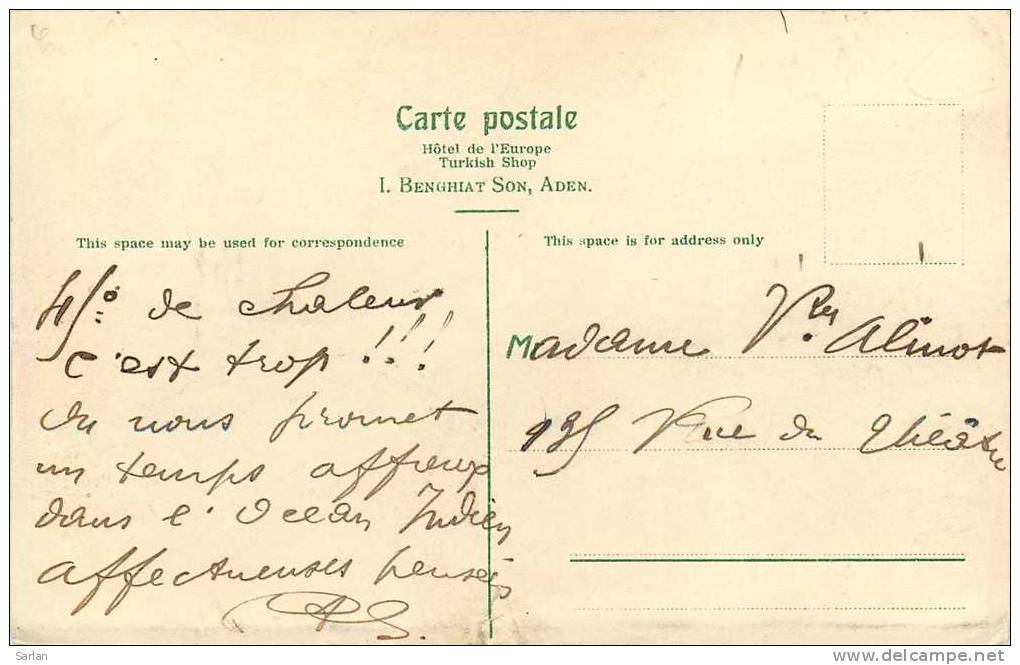 Carte postale
Hôtel de l'Europe
Turkish Shop
I. BENGHIAT SON, ADEN.
This space may be used for correspondence
45° de chaleur
c'est trop !!!
On nous promet
un temps affreux
dans l'Ocean Indien
affectueuses pensées
This space is for address only
Madame Alinot
195 Rue du Théâtre
Sarlan
www.delcampe.net